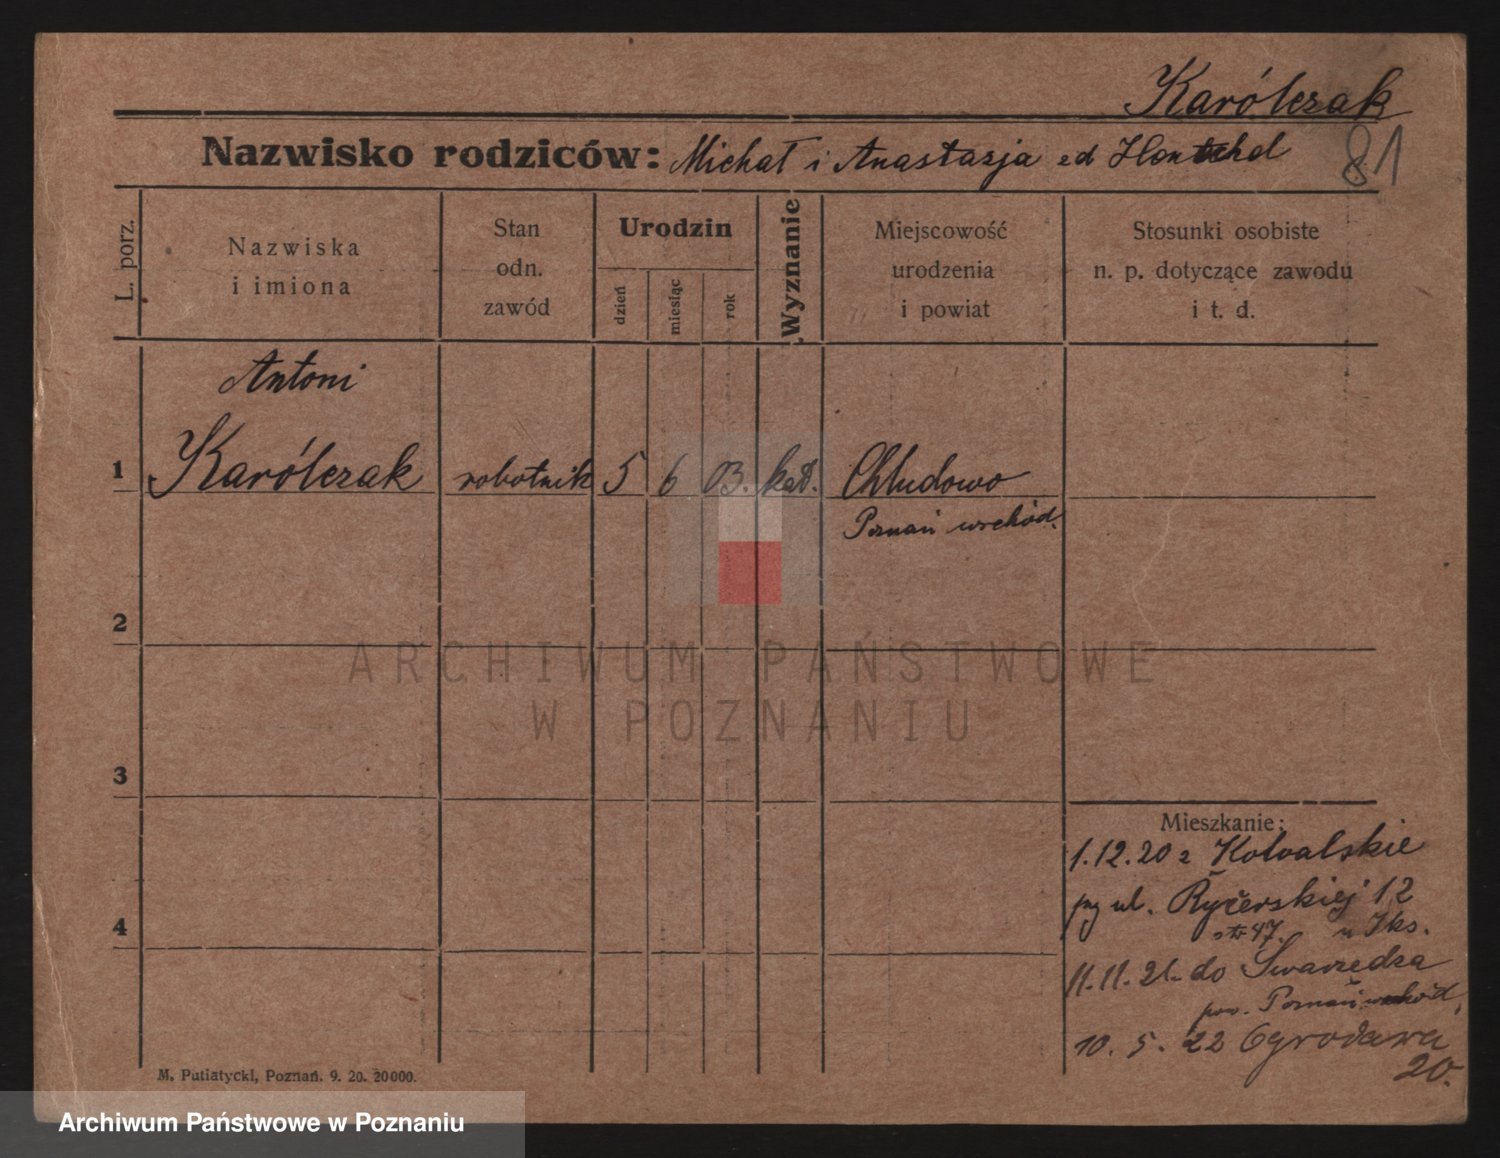 Karólczak
81
Nazwisko rodziców: Michał i Anastazja zd
L. porz.
Nazwiska
i imiona
Stan
odn.
zawód
Urodzin
dzień
miesiąc
rok
Wyznanie
Miejscowość
urodzenia
i powiat
Stosunki osobiste
n. p. dotyczące zawodu
i t. d.
Antoni
1 Karólczak robotnik 5 6 03. kat. Chludowo
Poznań wschód.
2
ARCHIWUM PAŃSTWOWE
W POZNANIU
3
Mieszkanie:
1.12.20 z Kowalskie
ul. Ryčerskiej 12
47. u
4
11.11.21. do Swarzędza
pow. Poznań wschód,
10. 5. 22 Ogrodowa
20.
M. Putiatycki, Poznań. 9. 20. 20000.
Archiwum Państwowe w Poznaniu